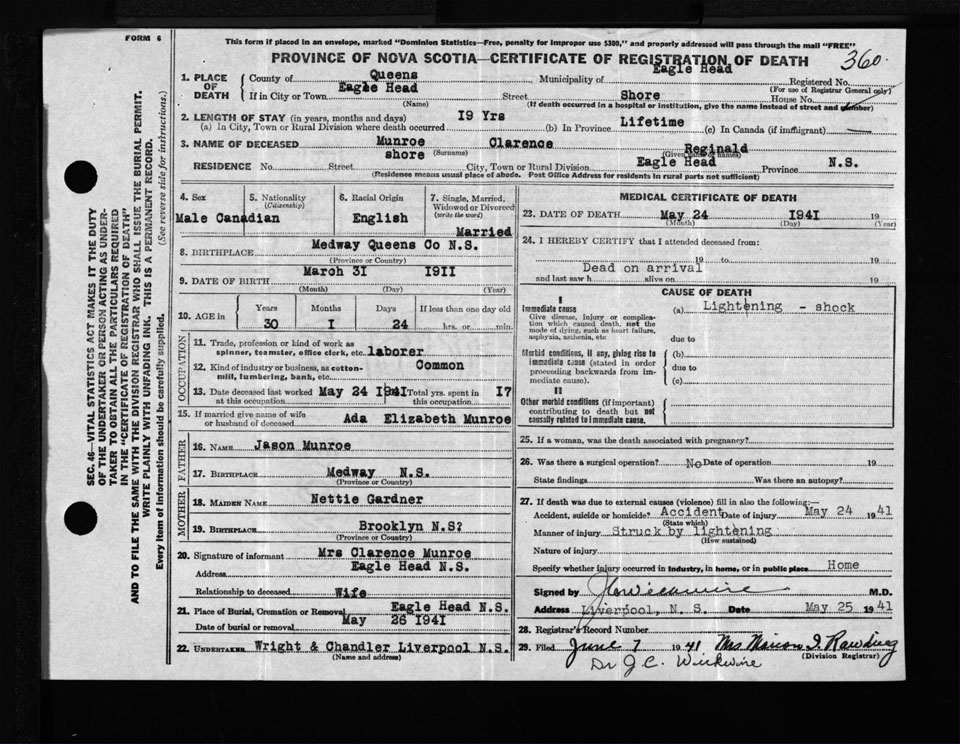 FORM 6
This form if placed in an envelope, marked "Dominion Statistics—Free, penalty for improper use $300," and properly addressed will pass through the mail "FREE"
PROVINCE OF NOVA SCOTIA—CERTIFICATE OF REGISTRATION OF DEATH
360
1. PLACE OF DEATH
County of Queens Municipality of Eagle Head Registered No.
(For use of Registrar General only)
If in City or Town Eagle Head Street Shore House No.
(Name) (If death occurred in a hospital or institution, give the name instead of street and number)
2. LENGTH OF STAY (in years, months and days)
(a) In City, Town or Rural Division where death occurred 19 Yrs (b) In Province Lifetime (c) In Canada (if immigrant) —
3. NAME OF DECEASED Munroe Clarence Reginald
(Surname) (Given name or names)
RESIDENCE No. Street shore City, Town or Rural Division Eagle Head Province N.S.
(Residence means usual place of abode. Post Office Address for residents in rural parts not sufficient)
4. Sex 5. Nationality (Citizenship) 6. Racial Origin 7. Single, Married, Widowed or Divorced (write the word)
Male Canadian English Married
8. BIRTHPLACE Medway Queens Co N.S.
(Province or Country)
9. DATE OF BIRTH March 31 1911
(Month) (Day) (Year)
10. AGE in Years Months Days If less than one day old
30 1 24 hrs. or min.
OCCUPATION
11. Trade, profession or kind of work as spinner, teamster, office clerk, etc. laborer
12. Kind of industry or business, as cotton-mill, lumbering, bank, etc. Common
13. Date deceased last worked at this occupation May 24 1941 Total yrs. spent in this occupation 17
15. If married give name of wife or husband of deceased Ada Elizabeth Munroe
FATHER
16. NAME Jason Munroe
17. BIRTHPLACE Medway N.S.
(Province or Country)
MOTHER
18. MAIDEN NAME Nettie Gardner
19. BIRTHPLACE Brooklyn N.S?
(Province or Country)
20. Signature of informant Mrs Clarence Munroe
Address Eagle Head N.S.
Relationship to deceased Wife
21. Place of Burial, Cremation or Removal Eagle Head N.S.
Date of burial or removal May 26 1941
22. UNDERTAKER Wright & Chandler Liverpool N.S.
(Name and address)
MEDICAL CERTIFICATE OF DEATH
23. DATE OF DEATH May 24 1941 19
(Month) (Day) (Year)
24. I HEREBY CERTIFY that I attended deceased from:
19 to 19
Dead on arrival
and last saw h alive on 19
CAUSE OF DEATH
I
Immediate cause (a) Lightening - shock
Give disease, injury or complication which caused death, not the mode of dying, such as heart failure, asphyxia, asthenia, etc
due to
Morbid conditions, if any, giving rise to immediate cause (stated in order proceeding backwards from immediate cause).
(b)
due to
(c)
II
Other morbid conditions (if important) contributing to death but not causally related to immediate cause.
25. If a woman, was the death associated with pregnancy?
26. Was there a surgical operation? No Date of operation 19
State findings Was there an autopsy?
27. If death was due to external causes (violence) fill in also the following:—
Accident, suicide or homicide? Accident Date of injury May 24 1941
(State which)
Manner of injury Struck by lightening
(How sustained)
Nature of injury
Specify whether injury occurred in industry, in home, or in public place Home
Signed by J C Wickwire M.D.
Address Liverpool, N. S. Date May 25 1941
28. Registrar's Record Number
29. Filed June 7 1941 Mrs Marion I. Rawding
(Division Registrar)
Dr J. C. Wickwire
SEC. 46—VITAL STATISTICS ACT MAKES IT THE DUTY
OF THE UNDERTAKER OR PERSON ACTING AS UNDER-
TAKER TO OBTAIN ALL THE PARTICULARS REQUIRED
IN THE "CERTIFICATE OF REGISTRATION OF DEATH"
AND TO FILE THE SAME WITH THE DIVISION REGISTRAR WHO SHALL ISSUE THE BURIAL PERMIT.
WRITE PLAINLY WITH UNFADING INK. THIS IS A PERMANENT RECORD.
Every item of information should be carefully supplied. (See reverse side for instructions.)